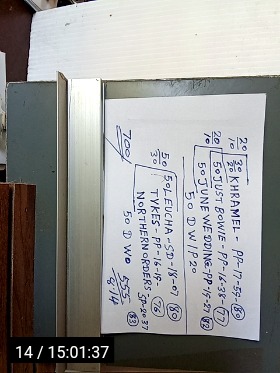 20/10 20/20 KHRAMEL- PP-17-55- 80
20/10 50 JUST BOWIE-PP-16-38- 77
50 JUNE WEDDING-PP-15-27 82
50 D W I P 20
50/30 50 LEUCHA-SD-18-07 80
TYKES-PP-16-15- 76
NORTHERN ORDERS SP-20-37 83
50 D W
700/
14 / 15:01:37